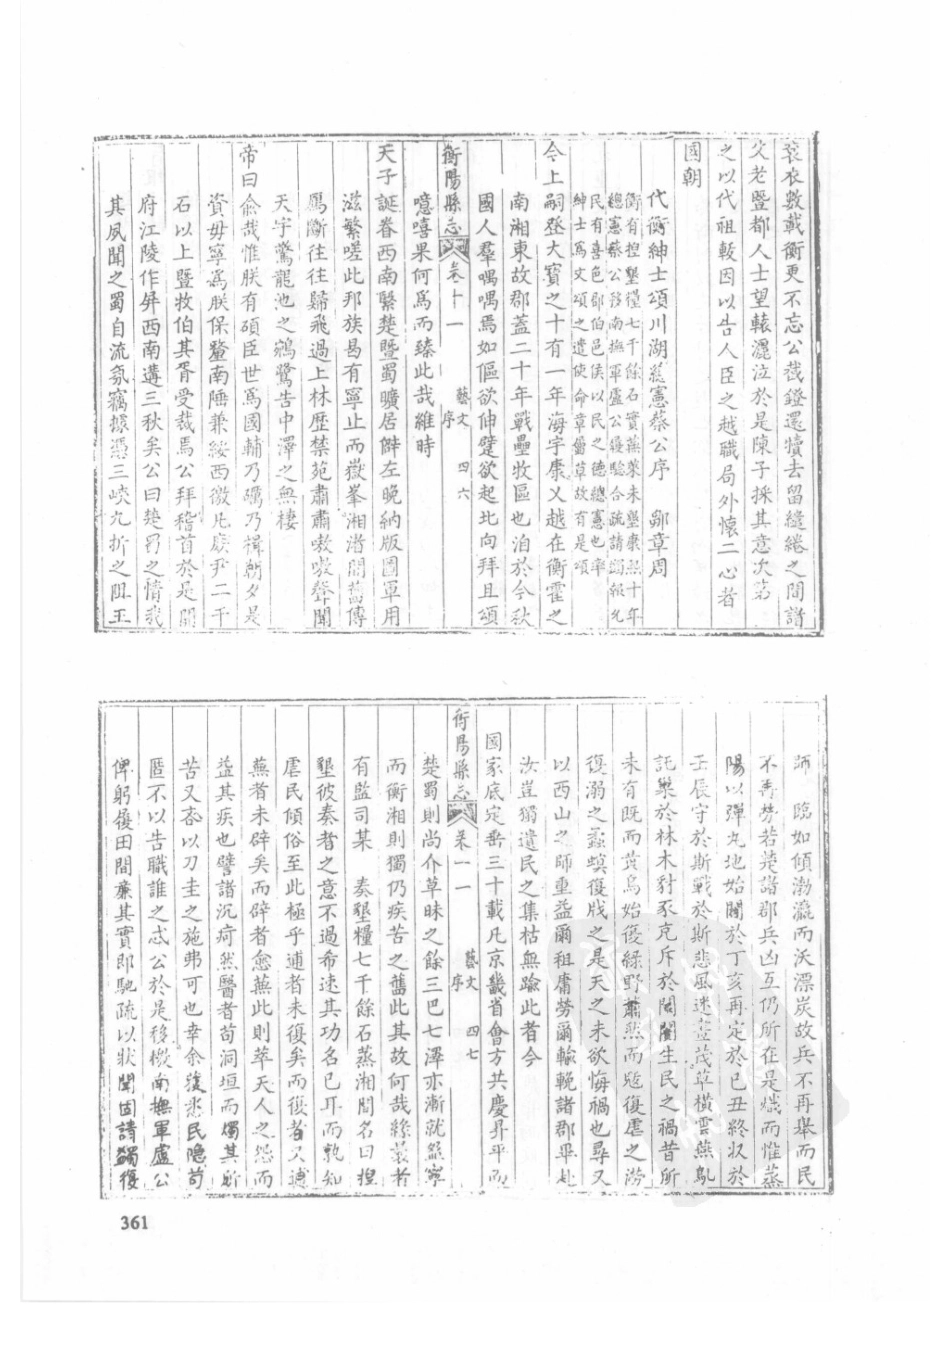 袞衣數載衡更不忘公截鐙還犢去留繾綣之間諸
父老暨都人士望轅灑泣於是陳子採其意次第
之以代祖較因以告人臣之越職局外懷二心者
國朝
代衡紳士頌川湖總憲蔡公序 鄒章周
衡有捏墾糧七千餘石實蕪萊未墾康熙十年
總憲蔡公移南撫軍盧公覆驗合疏請蠲報允
民有喜色郡伯邑侯以民之德總憲也率
紳士為文頌之遣使命章屬草故有是頌
今上嗣登大寶之十有一年海宇康乂越在衡霍之
南湘東故郡蓋二十年戰壘牧區也洎於今秋
國人羣喁喁焉如傴欲伸躄欲起北向拜且頌
衡陽縣志 卷十一 藝文 序 四六
噫嘻果何為而臻此哉維時
天子誕眷西南緊楚暨蜀曠居僻左晚納版圖軍用
滋繁嗟此邦族曷有寧止而嶽峯湘渚間舊傳
鴈斷往往歸飛過上林歷禁苑肅肅嗷嗷聲聞
天宇驚龍池之鵷鷺告中澤之無棲
帝曰俞哉惟朕有碩臣世為國輔乃礪乃楫朝夕是
資毋寧為朕保釐南陲兼綏西徼凡庶尹二千
石以上暨牧伯其胥受裁焉公拜稽首於是開
府江陵作屏西南遘三秋矣公曰楚蜀之情我
其夙聞之蜀自流氛竊據憑三峽九折之阻王
師 臨如傾渤瀛而沃漂炭故兵不再舉而民
不再勞若楚諸郡兵凶互仍所在是熾而惟蒸
陽以彈丸地始閧於丁亥再定於已丑終汏於
壬辰守於斯戰於斯悲風迷莖茂草橫雲燕鳦
託巢於林木豺豕充斥於閭闠生民之禍昔所
未有既而黃鳥始復綠野蕭然而虺復虐之潦
復溺之蟊螟復戕之是天之未欲悔禍也尋又
以西山之師重益爾租庸勞爾輸輓諸郡畢赴
汝豈獨遺民之集枯無踰此者今
國家底定垂三十載凡京畿省會方共慶昇平而
衡陽縣志 卷十一 藝文 序 四七
楚蜀則尚介草昧之餘三巴七澤亦漸就盈寧
而衡湘則獨仍疾苦之舊此其故何哉繇曩者
有監司某 奏墾糧七千餘石蒸湘間名曰捏
墾彼奏者之意不過希速其功名已耳而孰知
虐民傾俗至此極乎逋者未復矣而復者又逋
蕪者未辟矣而辟者愈蕪此則萃天人之怨而
益其疾也譬諸沉疴然醫者苟洞垣而燭其所
苦又吝以刀圭之施弗可也幸余職悉民隱苟
匿不以告職誰之忒公於是移檄南撫軍盧公
俾躬履田間廉其實即馳疏以狀聞固請蠲復
361